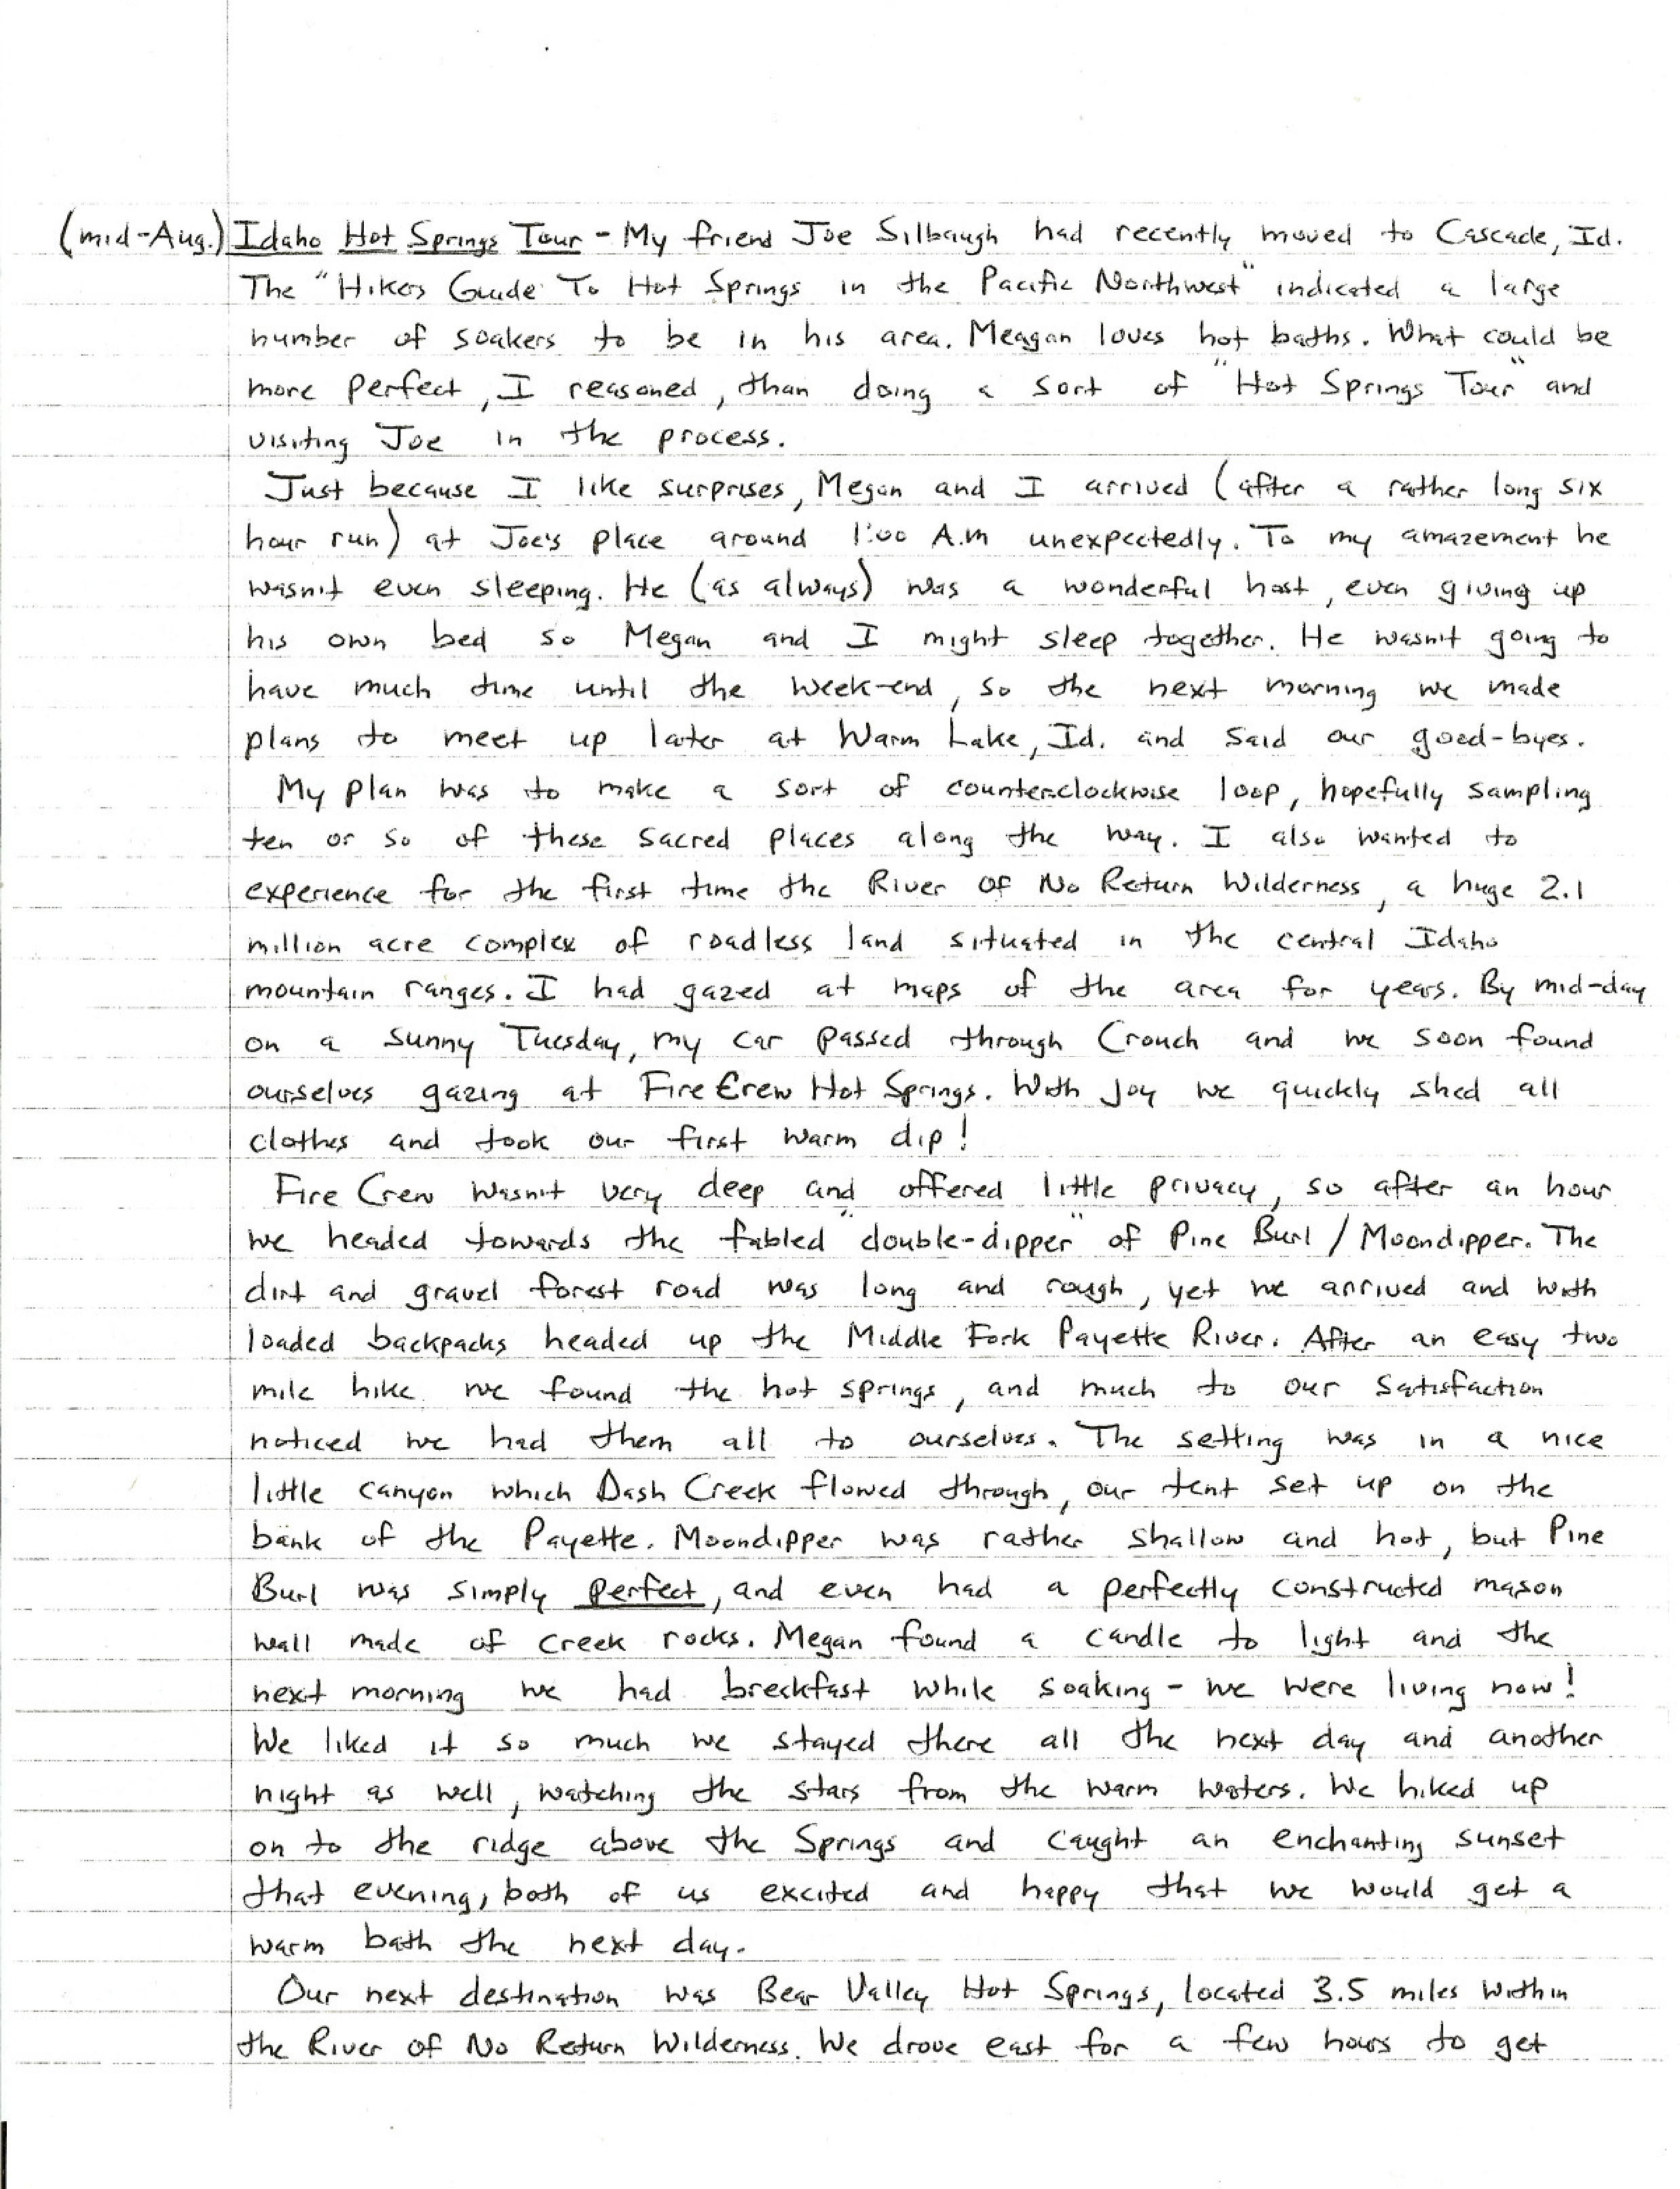 (mid-Aug.) Idaho Hot Springs Tour - My friend Joe Silbaugh had recently moved to Cascade, Id.
The "Hikers Guide To Hot Springs in the Pacific Northwest" indicated a large
number of soakers to be in his area. Meagan loves hot baths. What could be
more perfect, I reasoned, than doing a sort of "Hot Springs Tour" and
visiting Joe in the process.
Just because I like surprises, Megan and I arrived (after a rather long six
hour run) at Joe's place around 1:00 A.M unexpectedly. To my amazement he
wasn't even sleeping. He (as always) was a wonderful host, even giving up
his own bed so Megan and I might sleep together. He wasn't going to
have much time until the week-end, so the next morning we made
plans to meet up later at Warm Lake, Id. and said our good-byes.
My plan was to make a sort of counterclockwise loop, hopefully sampling
ten or so of these sacred places along the way. I also wanted to
experience for the first time the River Of No Return Wilderness, a huge 2.1
million acre complex of roadless land situated in the central Idaho
mountain ranges. I had gazed at maps of the area for years. By mid-day
on a sunny Tuesday, my car passed through Crouch and we soon found
ourselves gazing at Fire Crew Hot Springs. With joy we quickly shed all
clothes and took our first warm dip!
Fire Crew wasn't very deep and offered little privacy, so after an hour
we headed towards the fabled "double-dipper" of Pine Burl / Moondipper. The
dirt and gravel forest road was long and rough, yet we arrived and with
loaded backpacks headed up the Middle Fork Payette River. After an easy two
mile hike we found the hot springs, and much to our satisfaction
noticed we had them all to ourselves. The setting was in a nice
little canyon which Dash Creek flowed through, our tent set up on the
bank of the Payette. Moondipper was rather shallow and hot, but Pine
Burl was simply perfect, and even had a perfectly constructed mason
wall made of creek rocks. Megan found a candle to light and the
next morning we had breakfast while soaking - we were living now!
We liked it so much we stayed there all the next day and another
night as well, watching the stars from the warm waters. We hiked up
on to the ridge above the Springs and caught an enchanting sunset
that evening, both of us excited and happy that we would get a
warm bath the next day.
Our next destination was Bear Valley Hot Springs, located 3.5 miles within
the River of No Return Wilderness. We drove east for a few hours to get